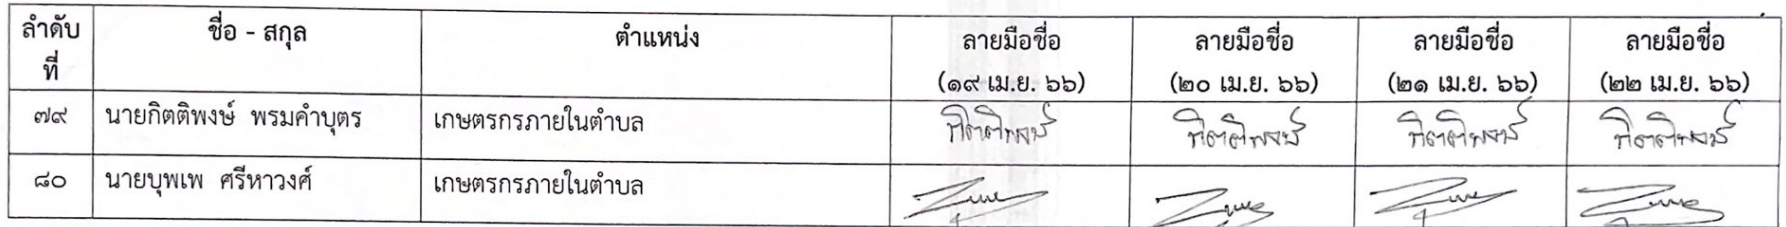 ลำดับ ชื่อ - สกุล ตำแหน่ง ลายมือชื่อ ลายมือชื่อ ลายมือชื่อ ลายมือชื่อ
ที่ (๑๙ เม.ย. ๖๖) (๒๐ เม.ย. ๖๖) (๒๑ เม.ย. ๖๖) (๒๒ เม.ย. ๖๖)
๗๙ นายกิตติพงษ์ พรมคำบุตร เกษตรกรภายในตำบล กิตติพงษ์ กิตติพงษ์ กิตติพงษ์ กิตติพงษ์
๘๐ นายบุพเพ ศรีหาวงศ์ เกษตรกรภายในตำบล